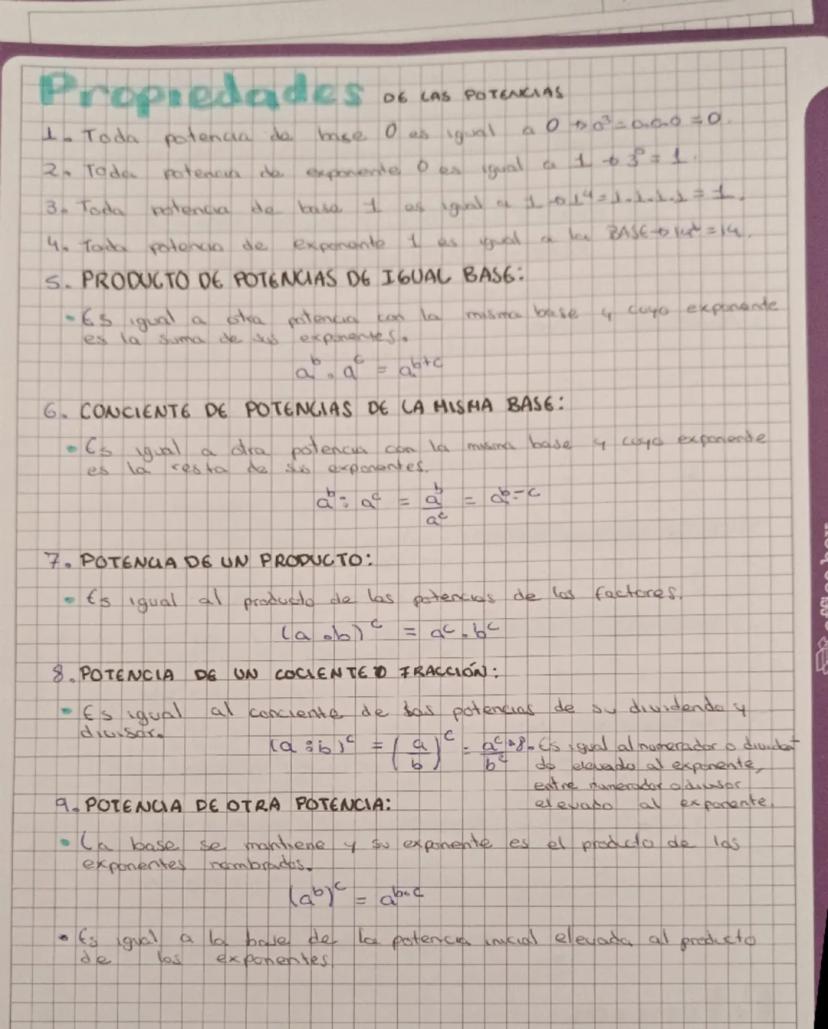 Propiedades DE LAS POTENCIAS
1. Toda potencia de base 0 es igual a 0 → 0³ = 0.0.0 = 0.
2. Toda potencia de exponente 0 es igual a 1 → 3⁰ = 1.
3. Toda potencia de base 1 es igual a 1 → 1⁴ = 1.1.1.1 = 1.
4. Toda potencia de exponente 1 es igual a la BASE → 14¹ = 14.
5. PRODUCTO DE POTENCIAS DE IGUAL BASE:
• Es igual a otra potencia con la misma base y cuyo exponente
es la suma de sus exponentes.
aᵇ . aᶜ = aᵇ⁺ᶜ
6. CONCIENTE DE POTENCIAS DE LA MISMA BASE:
• Es igual a otra potencia con la misma base y cuyo exponente
es la resta de sus exponentes.
aᵇ : aᶜ = aᵇ/aᶜ = aᵇ⁻ᶜ
7. POTENCIA DE UN PRODUCTO:
• Es igual al producto de las potencias de los factores.
(a . b)ᶜ = aᶜ . bᶜ
8. POTENCIA DE UN COCIENTE O FRACCIÓN:
• Es igual al conciente de las potencias de su dividendo y
divisor.
(a : b)ᶜ = (a/b)ᶜ = aᶜ/bᶜ
8. Es igual al numerador o dividen
do elevado al exponente,
entre numerador o divisor
elevado al exponente.
9. POTENCIA DE OTRA POTENCIA:
• La base se mantiene y su exponente es el producto de los
exponentes nombrados.
(aᵇ)ᶜ = aᵇ·ᶜ
• Es igual a la base de la potencia inicial elevada al producto
de los exponentes